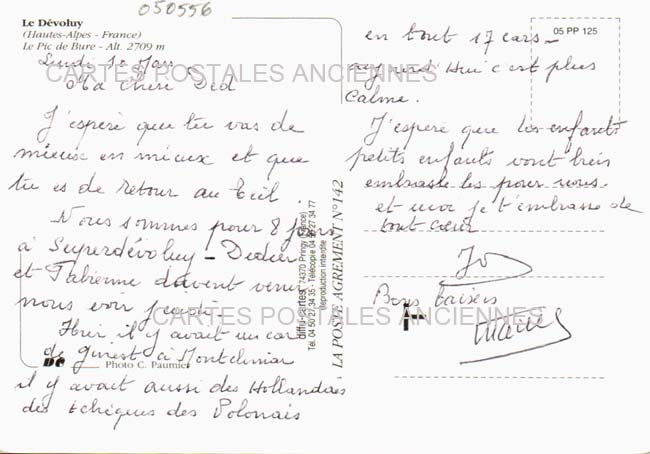 050556
Le Dévoluy
(Hautes-Alpes - France)
Le Pic de Bure - Alt. 2709 m
Lundi 30 Mars
Ma Chère Déd
J'espère que tu vas de
mieux en mieux et que
tu es de retour au
Nous sommes pour 8 jours
à Superdévoluy - Didier
et Fabienne doivent venir
nous voir jeudi.
Hier il y avait un car
de à Montelimar
il y avait aussi des Hollandais
des tchèques des Polonais
Photo C. Paumier
en tout 17 cars -
aujourd'hui c'est plus
calme.
J'espère que tes enfants
petits enfants vont bien
embrasse les pour nous
et moi je t'embrasse de
tout cœur
Jo
Bons baisers
05 PP 125
diffu-cartes 74370 Pringy (France)
Tél. 04 50 27 34 35 - Télécopie 04 50 27 34 77
Reproduction interdite
- LA POSTE AGREMENT N° 142
CARTES POSTALES ANCIENNES
CARTES POSTALES ANCIENNES